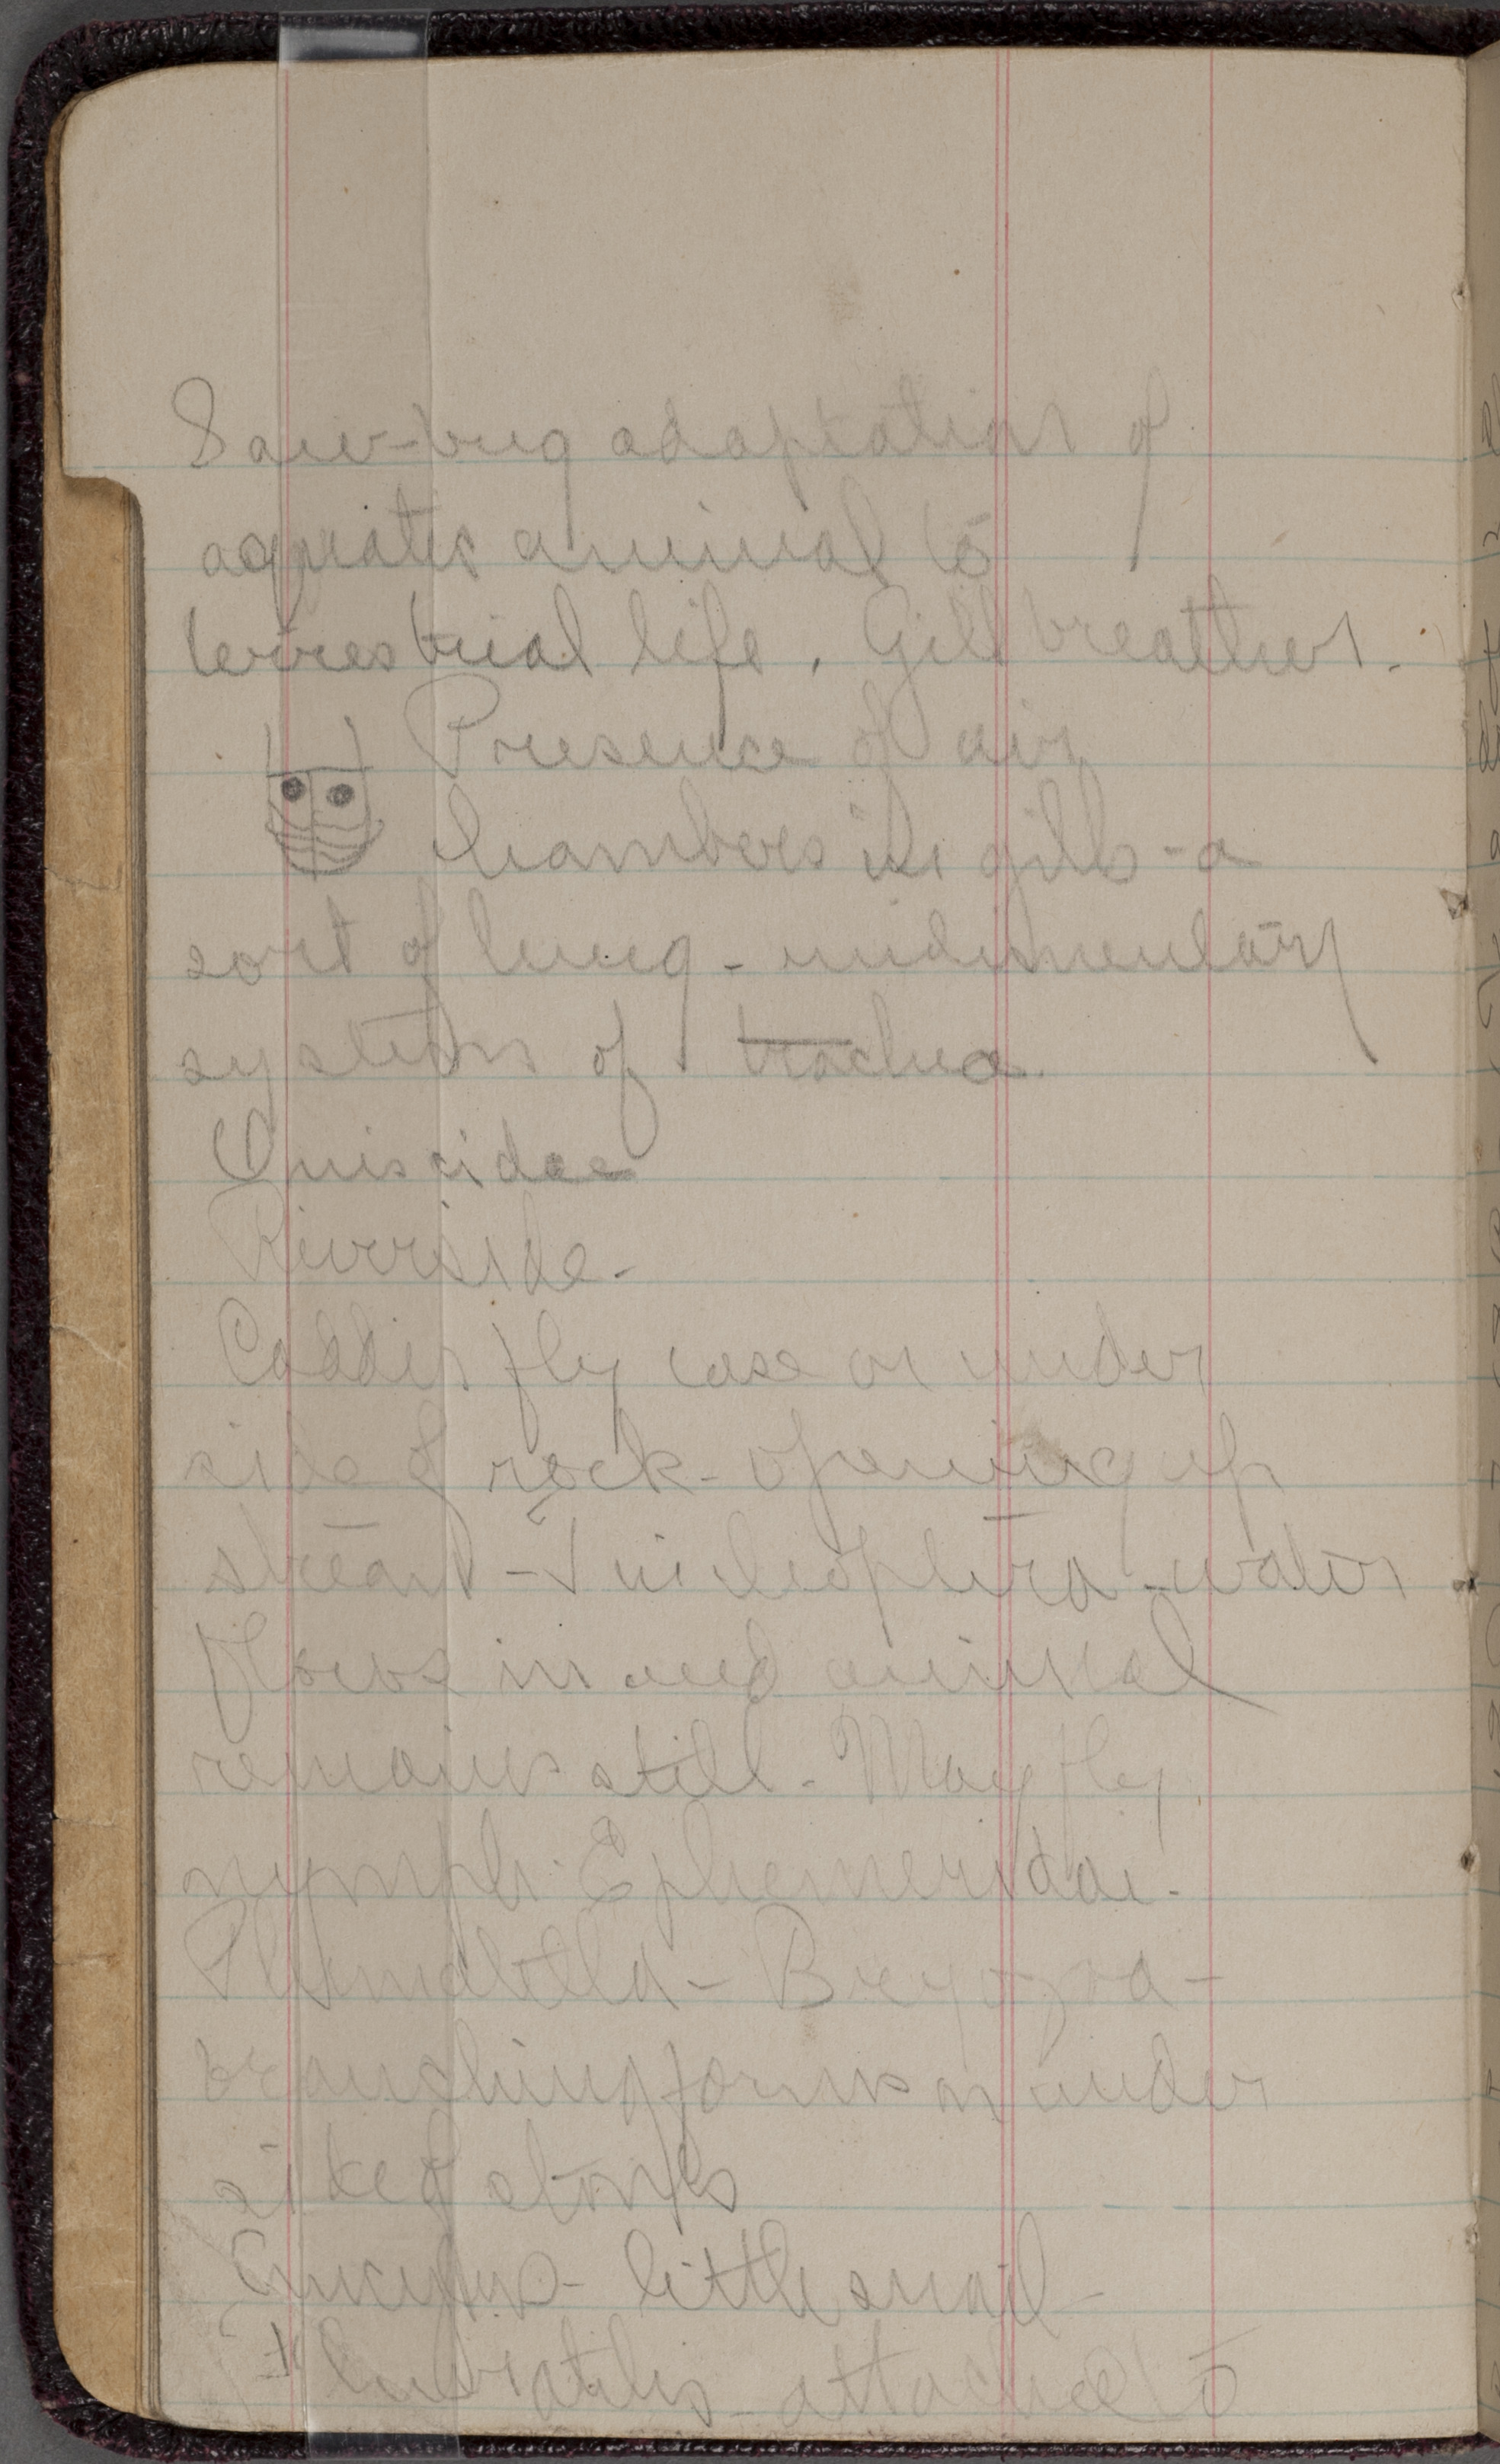 Sow-bug adaptation of
aquatic animal to
terrestrial life. Gill breather.
Presence of air
chambers in gills - a
sort of lung - rudimentary
system of trachea.
Oniscidae
Riverside -
Caddis fly case on under
side of rock - opening up
stream - water
flows in and animal
remains still. May fly
nymph. Ephemeridae.
Plumatella - Bryozoa -
branching forms on under
side of stones
Ancylus - little snail -
fluviatilis - attached to